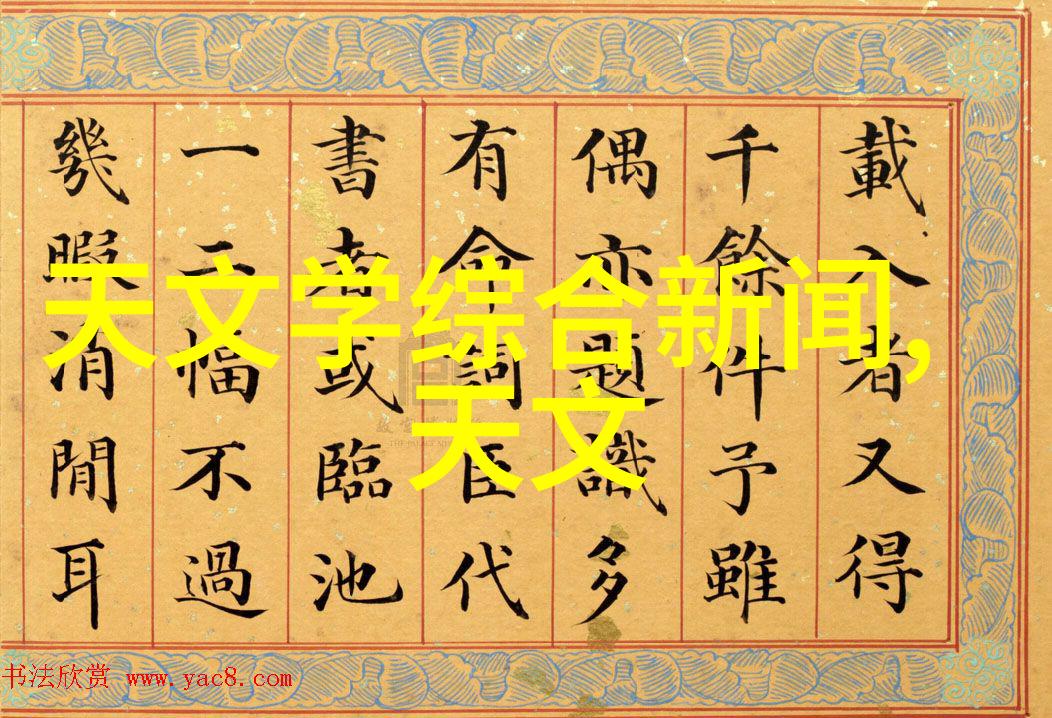 載入者又得
千餘件予雖
偶亦題識多
有命詞臣代
書者或臨池
一二幅不過
幾暇消閒耳
天文学综合新闻,
天文
书法欣赏 www.yac8.com